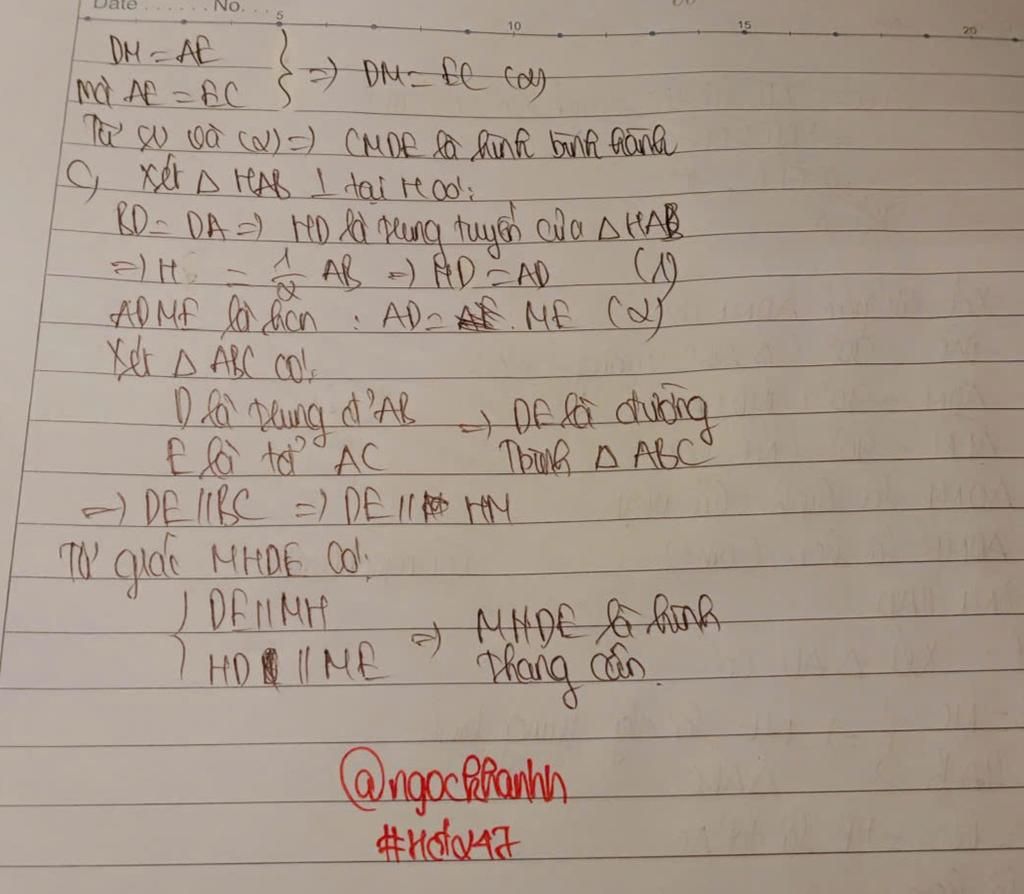 Date ...... No. ...
5 10 15 20
DM = AE
mà AE = EC } => DM = EC (2)
Từ (1) và (2) => CMDE là hình bình hành
C, Xét Δ HAB ⊥ tại H có:
BD = DA => HD là trung tuyến của Δ HAB
=> H = 1/2 AB => HD = AD (1)
ADME là hcn : AD = ME (2)
Xét Δ ABC có:
D là trung đ' AB => DE là đường
E là tđ' AC Tbình Δ ABC
=> DE // BC => DE // HM
Tứ giác MHDE có:
DE // MH => MHDE là hình
HD // ME thang cân.
@ngockhanhh
#Hoi247